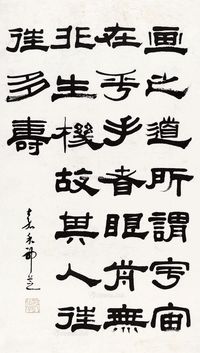 画之道所謂宇宙
在乎手者眼前無
非生機故其人往
往多壽